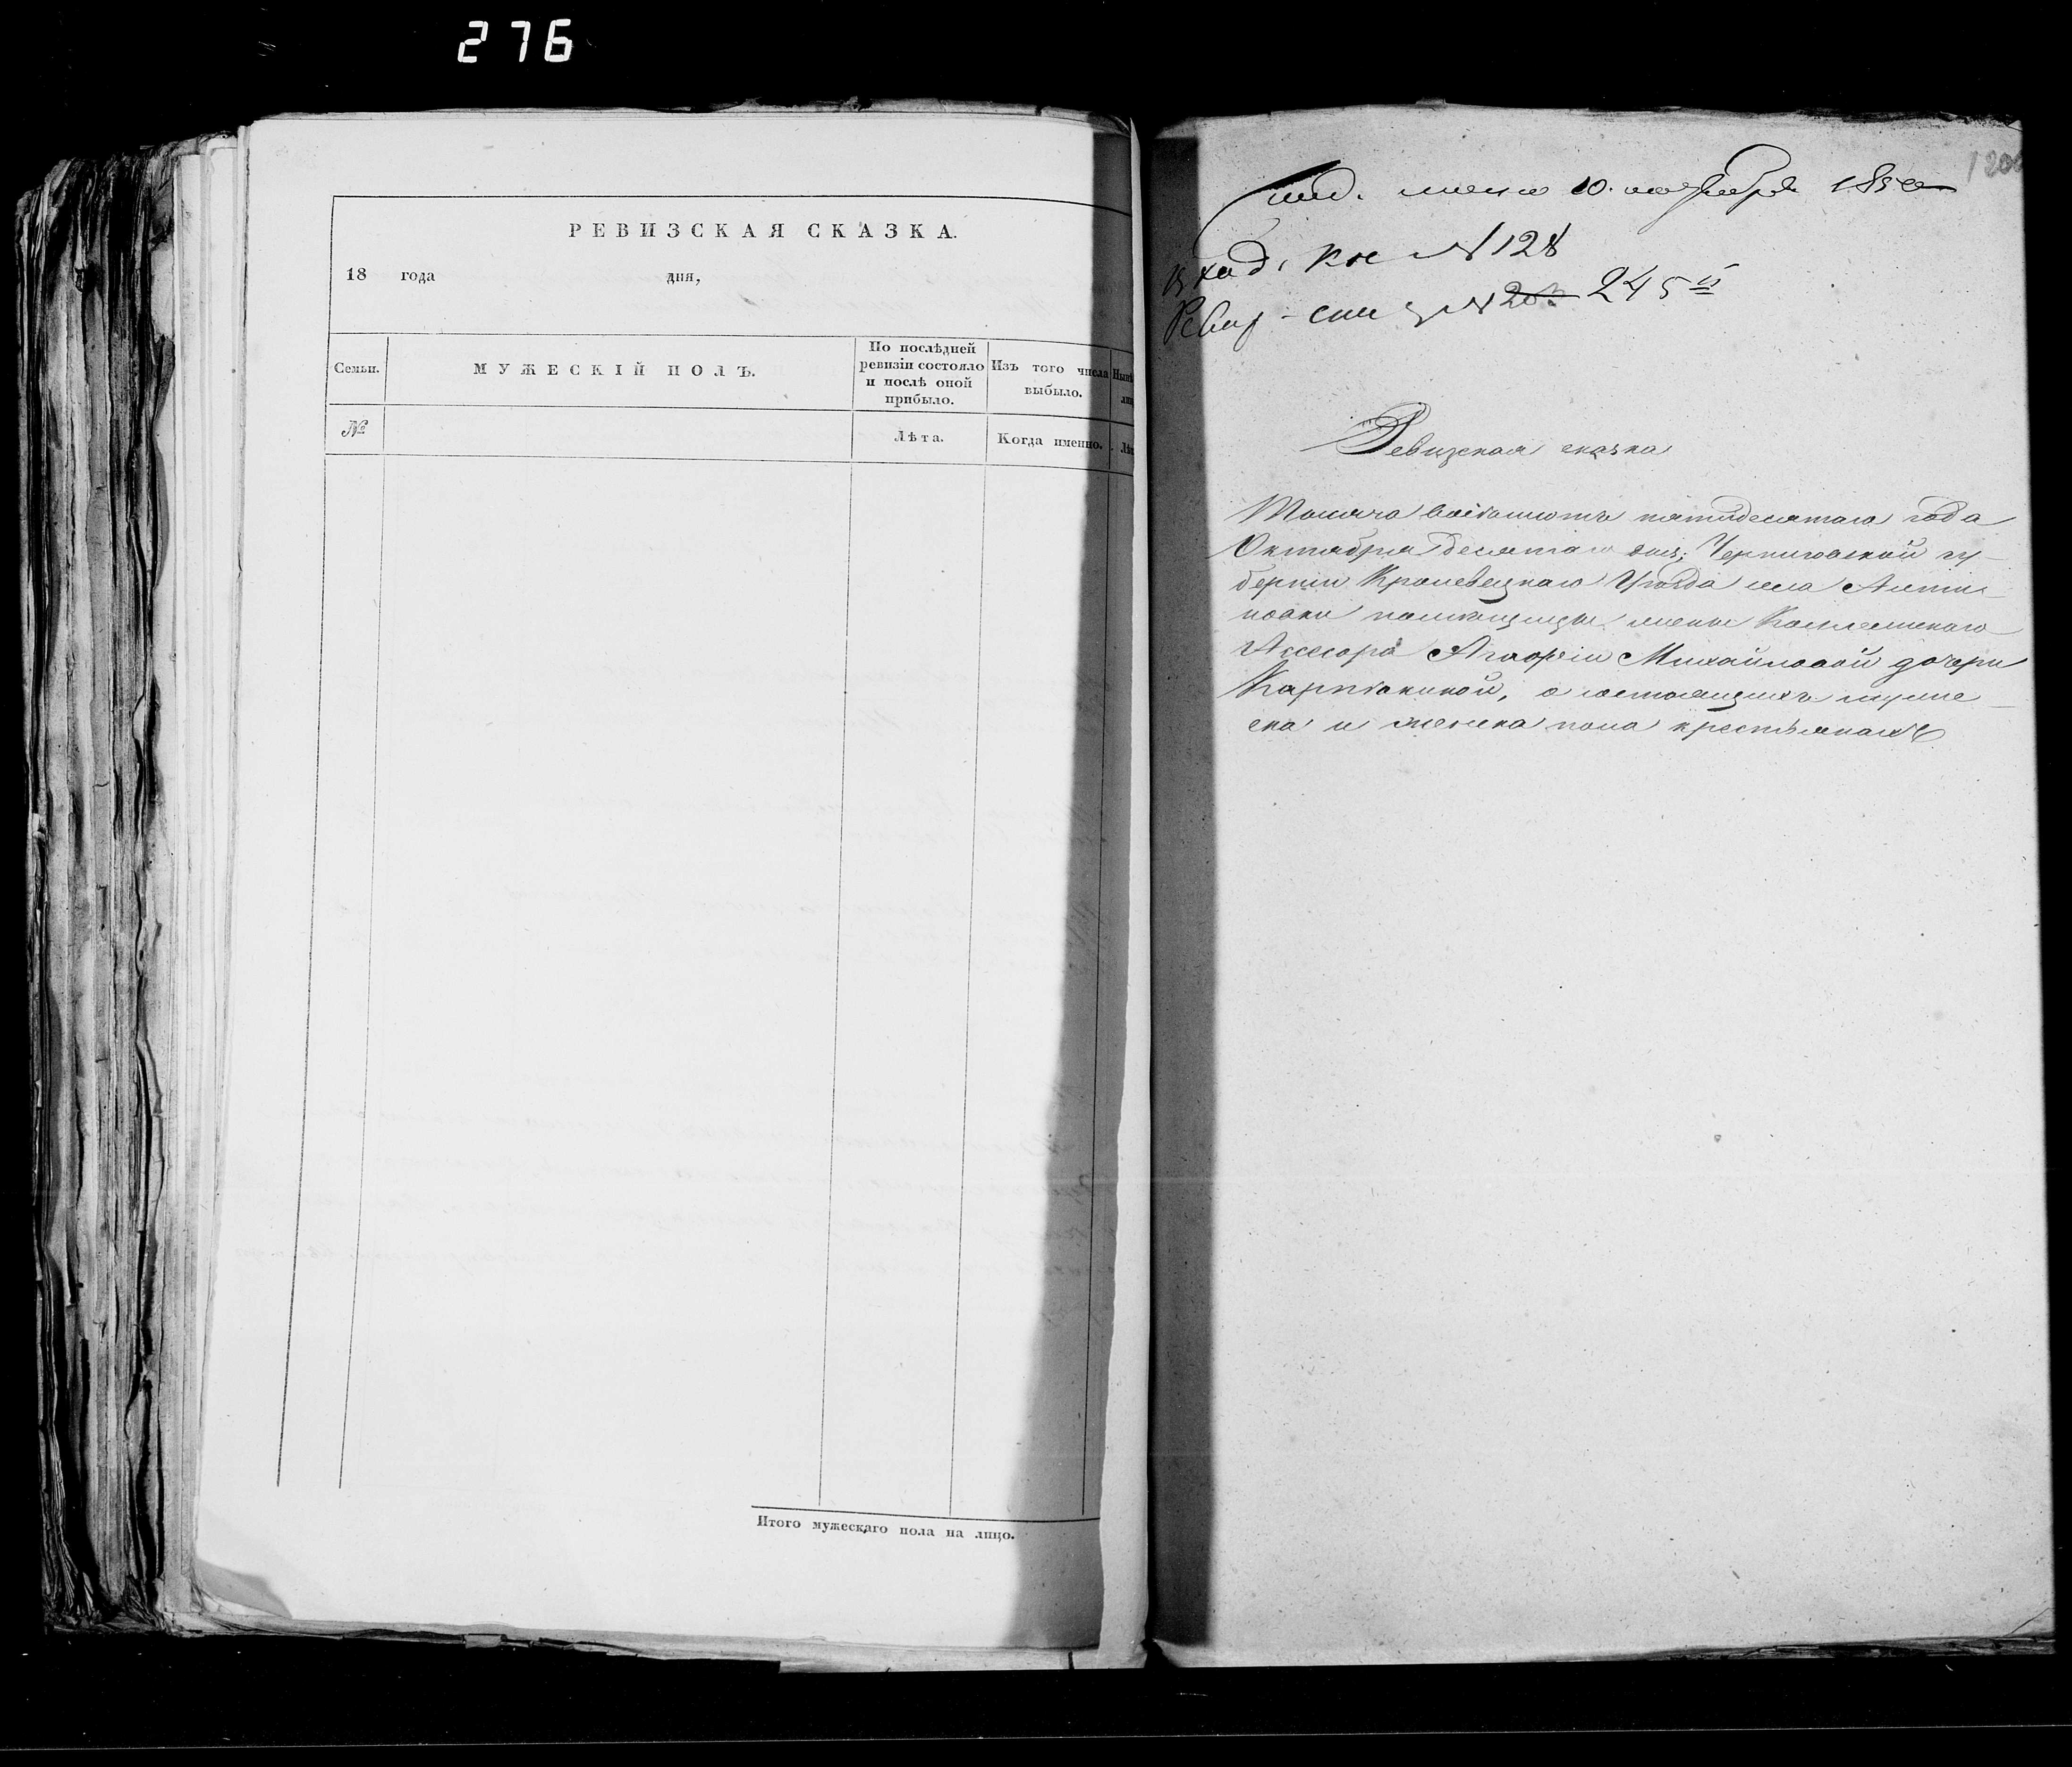 276
РЕВИЗСКАЯ СКАЗКА.
18 года дня,
Семьи.
МУЖЕСКІЙ ПОЛЪ.
По послѣдней
ревизіи состояло
и послѣ оной
прибыло.
Изъ того числа
выбыло.
№
Лѣта.
Когда именно.
Итого мужескаго пола на лицо.
120
10. ноября 1850
Вход. № 128
Ревиз 245
Ревизская сказка
Тысяча восімсотъ пятидесятаго года
Октября десятаго дня; Черниговской гу-
берніи Кролевецкаго Уѣзда села Алти-
новки помѣщицы жены Коллежскаго
Ассесора Михайловой дочери
Карпѣкиной, о состоящихъ муже-
ска и женска пола крестьянахъ